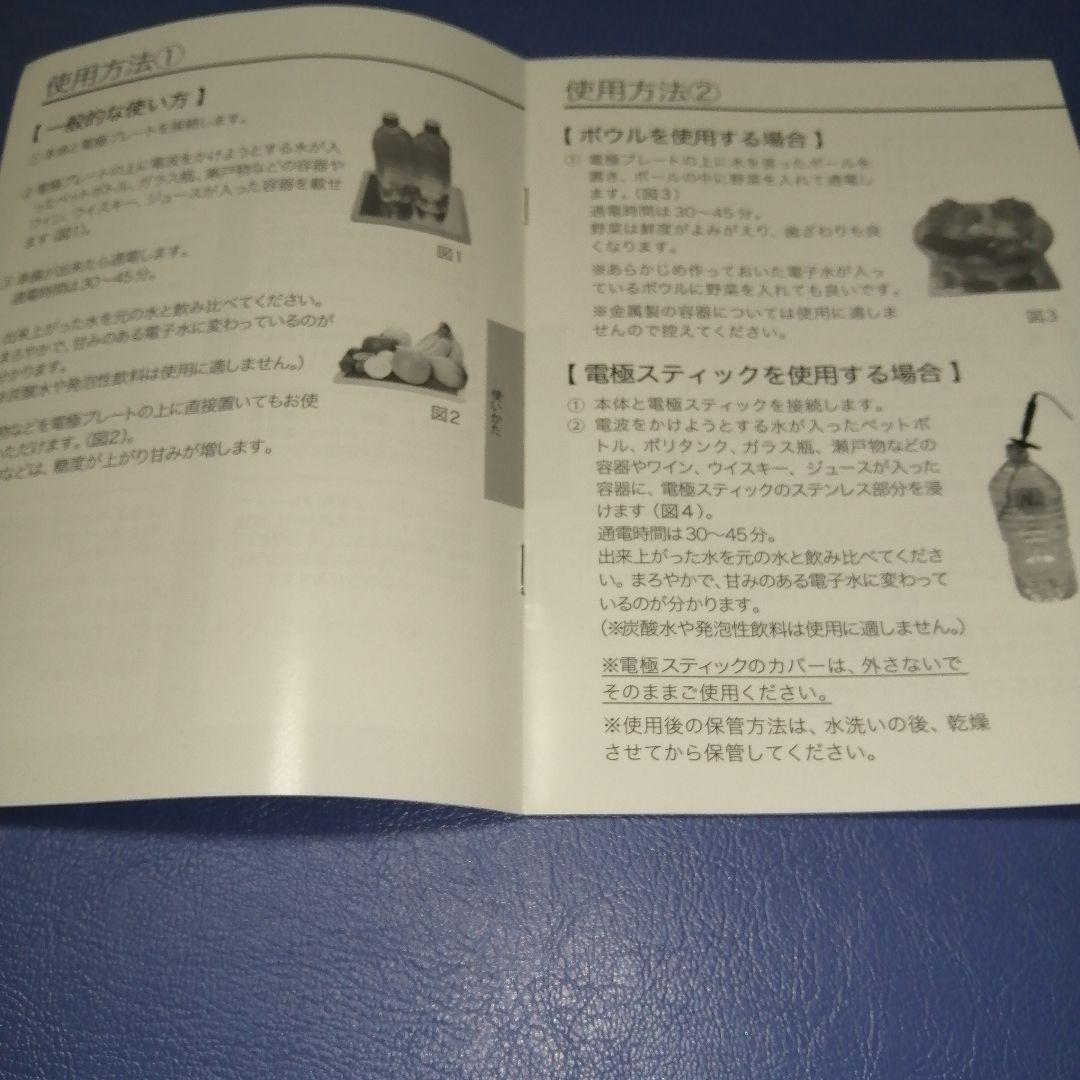 使用方法①
【 一般的な使い方 】
① 本体と電極プレートを接続します。
② 電極プレートの上に電波をかけようとする水が入
ったペットボトル、ガラス瓶、瀬戸物などの容器や
ワイン、ウイスキー、ジュースが入った容器を載せ
ます(図1)。
図1
③ 準備が出来たら通電します。
通電時間は30〜45分。
出来上がった水を元の水と飲み比べてください。
まろやかで、甘みのある電子水に変わっているのが
分かります。
炭酸水や発泡性飲料は使用に適しません。)
物などを電極プレートの上に直接置いてもお使
いただけます。(図2)。
などは、糖度が上がり甘みが増します。
図2
使いかた
使用方法②
【 ボウルを使用する場合 】
① 電極プレートの上に水を張ったボールを
置き、ボールの中に野菜を入れて通電し
ます。(図3)
通電時間は30〜45分。
野菜は鮮度がよみがえり、歯ざわりも良
くなります。
※あらかじめ作っておいた電子水が入っ
ているボウルに野菜を入れても良いです。
※金属製の容器については使用に適しま
せんので控えてください。
図3
【 電極スティックを使用する場合 】
① 本体と電極スティックを接続します。
② 電波をかけようとする水が入ったペットボ
トル、ポリタンク、ガラス瓶、瀬戸物などの
容器やワイン、ウイスキー、ジュースが入った
容器に、電極スティックのステンレス部分を浸
けます(図4)。
通電時間は30〜45分。
出来上がった水を元の水と飲み比べてくださ
い。まろやかで、甘みのある電子水に変わって
いるのが分かります。
(※炭酸水や発泡性飲料は使用に適しません。)
※電極スティックのカバーは、外さないで
そのままご使用ください。
※使用後の保管方法は、水洗いの後、乾燥
させてから保管してください。